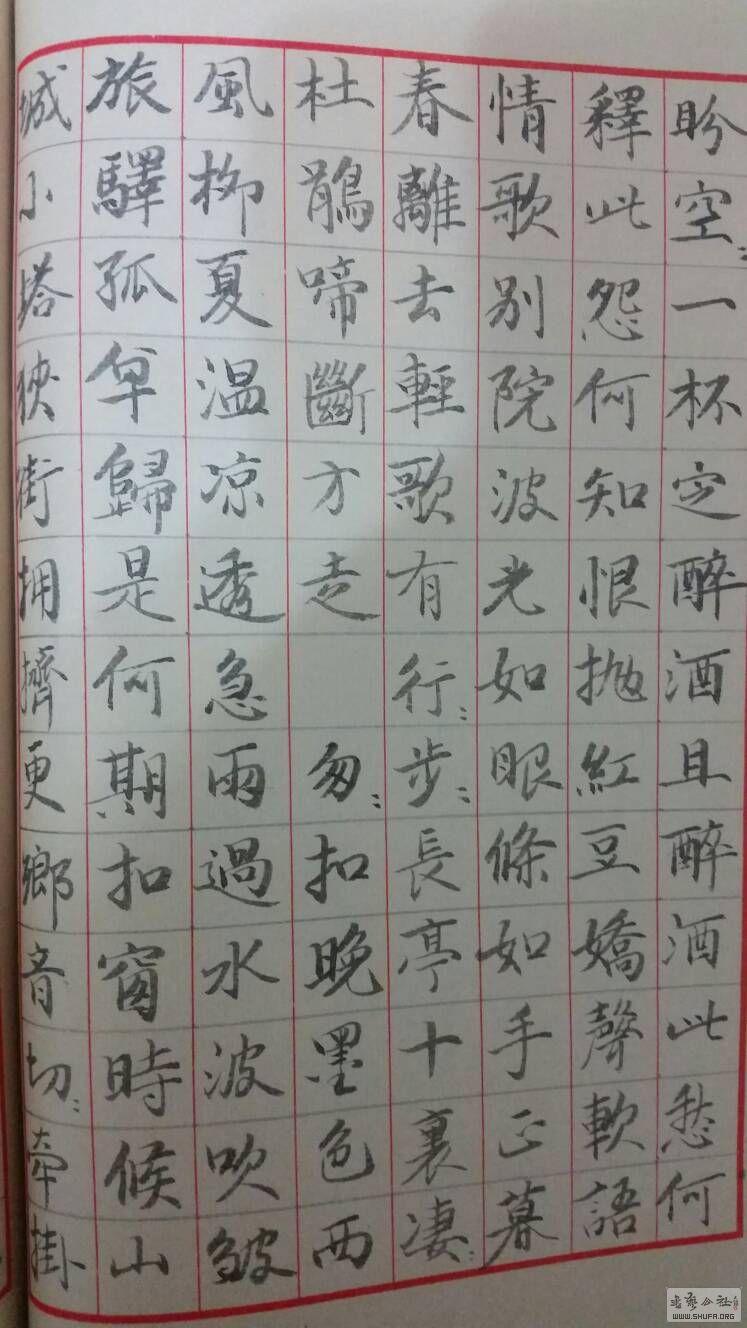 盼空〻一杯空醉酒且醉酒此愁何
釋此怨何知恨抛紅豆嬌聲軟語
情歌别院波光如眼條如手正暮
春離去輕歌有行〻步〻長亭十裏淒〻
杜鵑啼斷方走 匆〻扣晚墨色西
風柳夏温凉透急雨過水波吹皺
旅驛孤身歸是何期扣窗時候山
城小塔狹街擁擠更鄉音切〻牽掛
WWW.SHUFA.ORG